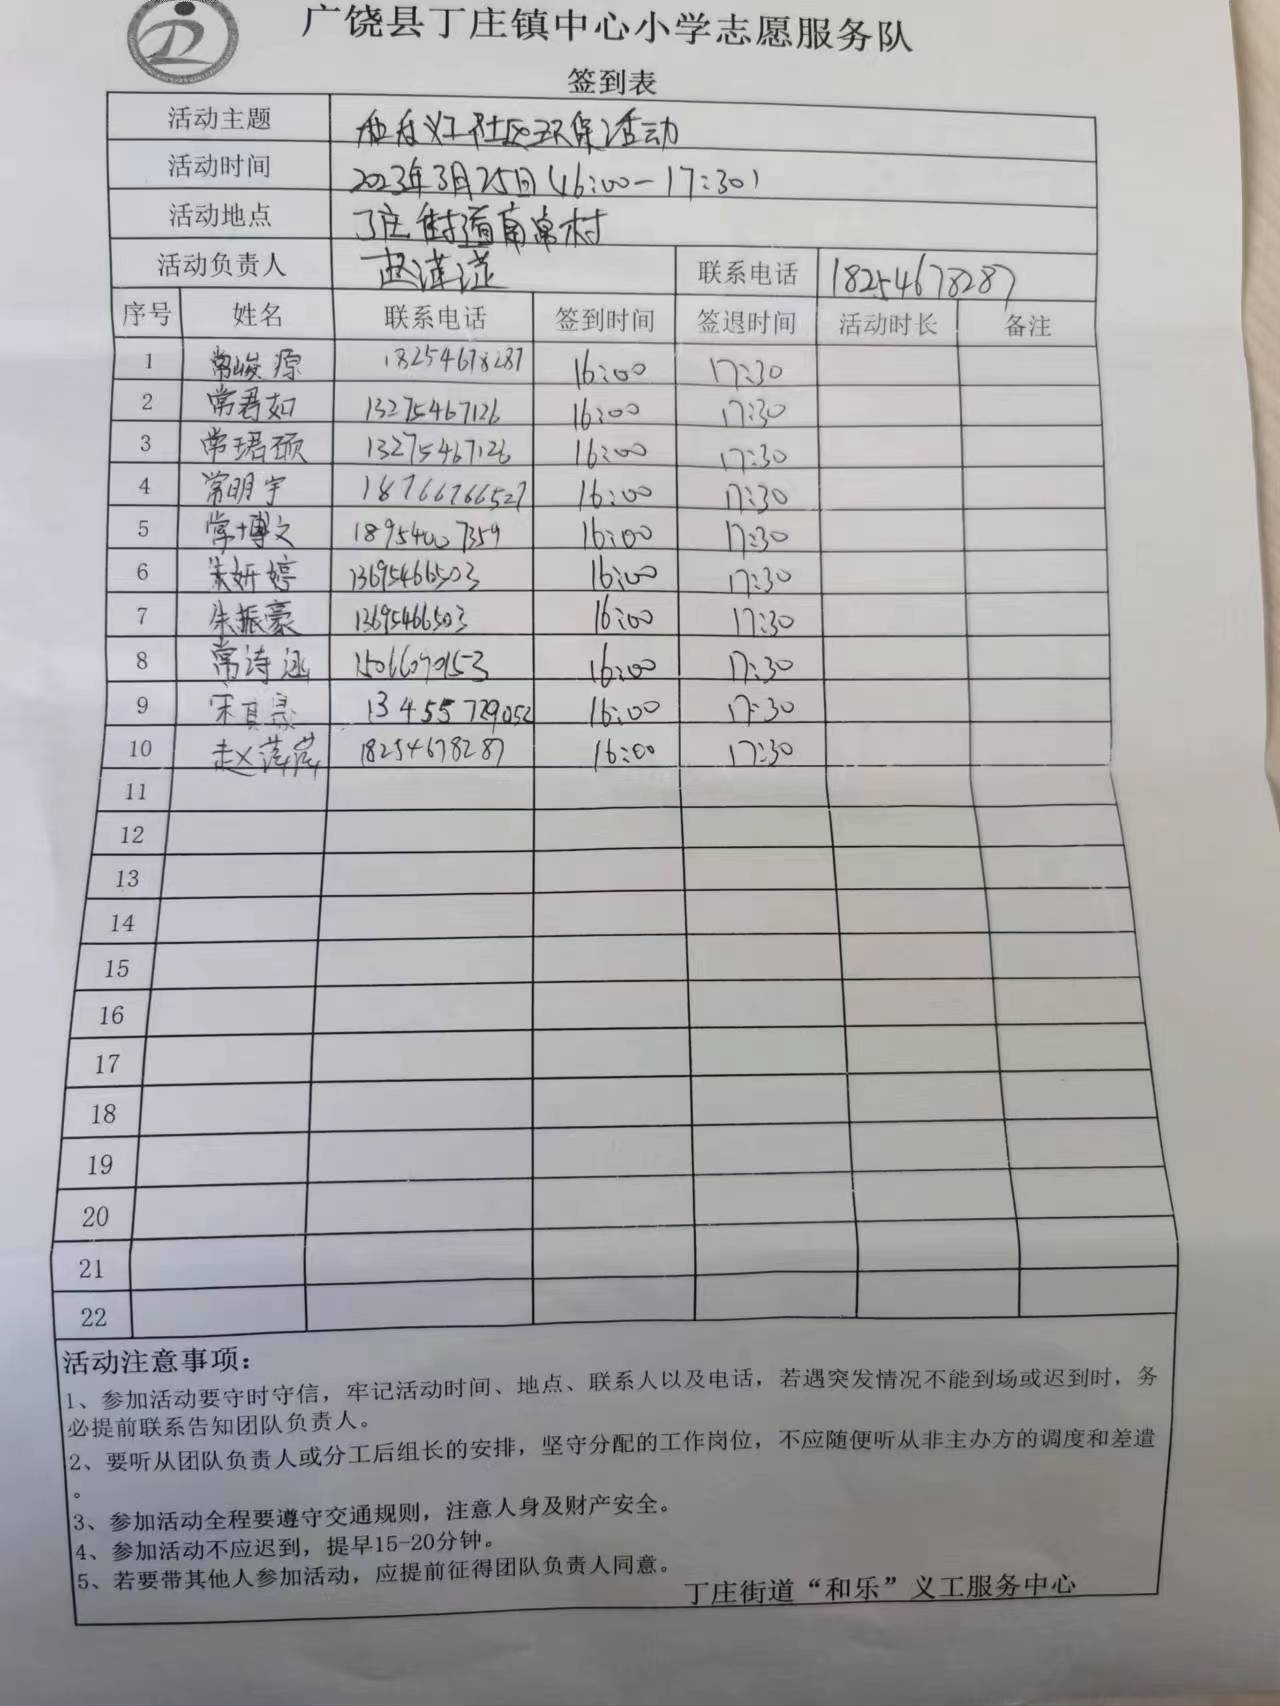 广饶县丁庄镇中心小学志愿服务队
签到表
活动主题 义工社区环保活动
活动时间 2023年3月25日(16:00-17:30)
活动地点 丁庄街道南常村
活动负责人 联系电话 18254678287
序号 姓名 联系电话 签到时间 签退时间 活动时长 备注
1 常峻源 18254678287 16:00 17:30
2 常君如 13275467126 16:00 17:30
3 常珺硕 13275467126 16:00 17:30
4 常明宇 18766766527 16:00 17:30
5 常博文 18954007359 16:00 17:30
6 朱妍婷 13695466503 16:00 17:30
7 朱振豪 13695466503 16:00 17:30
8 常诗涵 15066070153 16:00 17:30
9 13455729052 16:00 17:30
10 18254678287 16:00 17:30
11
12
13
14
15
16
17
18
19
20
21
22
活动注意事项：
1、参加活动要守时守信，牢记活动时间、地点、联系人以及电话，若遇突发情况不能到场或迟到时，务
必提前联系告知团队负责人。
2、要听从团队负责人或分工后组长的安排，坚守分配的工作岗位，不应随便听从非主办方的调度和差遣
。
3、参加活动全程要遵守交通规则，注意人身及财产安全。
4、参加活动不应迟到，提早15-20分钟。
5、若要带其他人参加活动，应提前征得团队负责人同意。
丁庄街道“和乐”义工服务中心